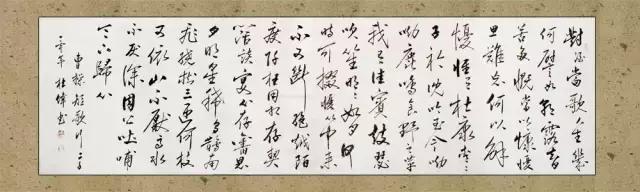 對酒當歌人生幾
何譬如朝露去日
苦多慨當以慷憂
思難忘何以解
憂惟有杜康青青
子沈吟至今呦
呦鹿鳴食野之苹
我有嘉賓鼓瑟
吹笙明明如月何
時可掇憂從中來
不可斷絕越陌
度阡枉用相存契
闊談讌心念舊恩
月明星稀烏鵲南
飛繞樹三匝何枝
可依山不厭高水
不厭深周公吐哺
天下歸心
曹操短歌行一首
年杜偉書